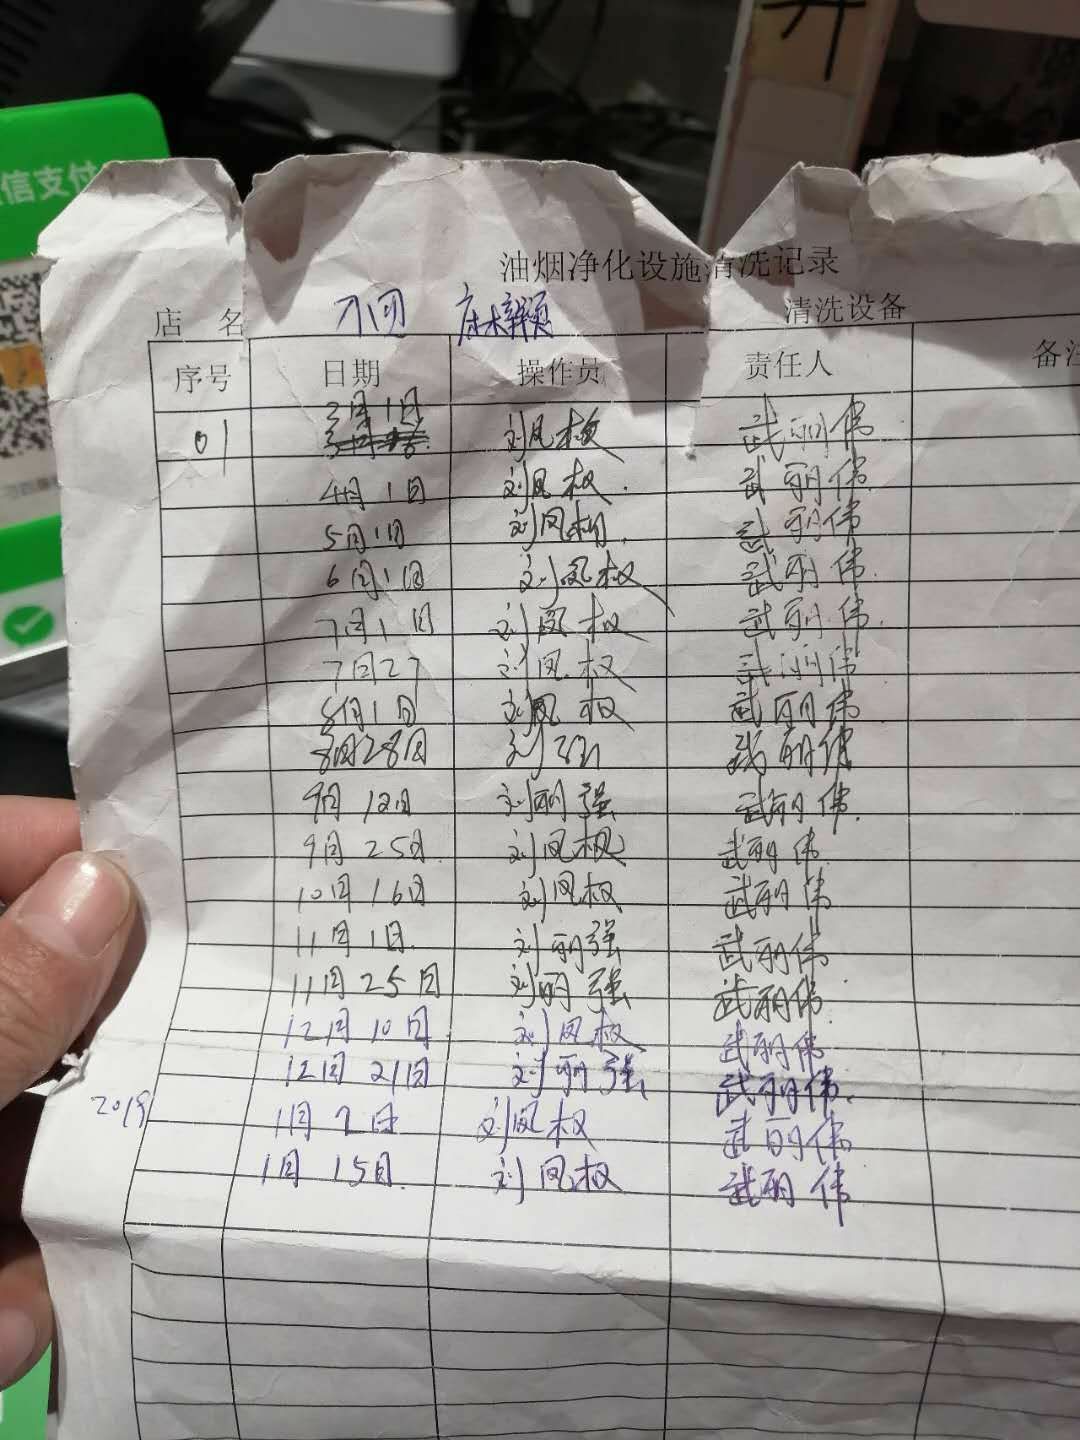 信支付
油烟净化设施清洗记录
店 名 刁四麻辣颖 清洗设备
序号 日期 操作员 责任人 备注
01 3月1日 刘凤权 武丽伟
4月1日 刘凤权 武丽伟
5月1日 刘凤权 武丽伟
6月1日 刘凤权 武丽伟
7月1日 刘凤权 武丽伟
7月27 刘凤权 武丽伟
8月1日 刘凤权 武丽伟
8月28日 刘强 武丽伟
9月12日 刘丽强 武丽伟
9月25日 刘凤权 武丽伟
10月16日 刘凤权 武丽伟
11月1日 刘丽强 武丽伟
11月25日 刘丽强 武丽伟
12月10日 刘凤权 武丽伟
12月21日 刘丽强 武丽伟
2019 1月2日 刘凤权 武丽伟
1月15日 刘凤权 武丽伟